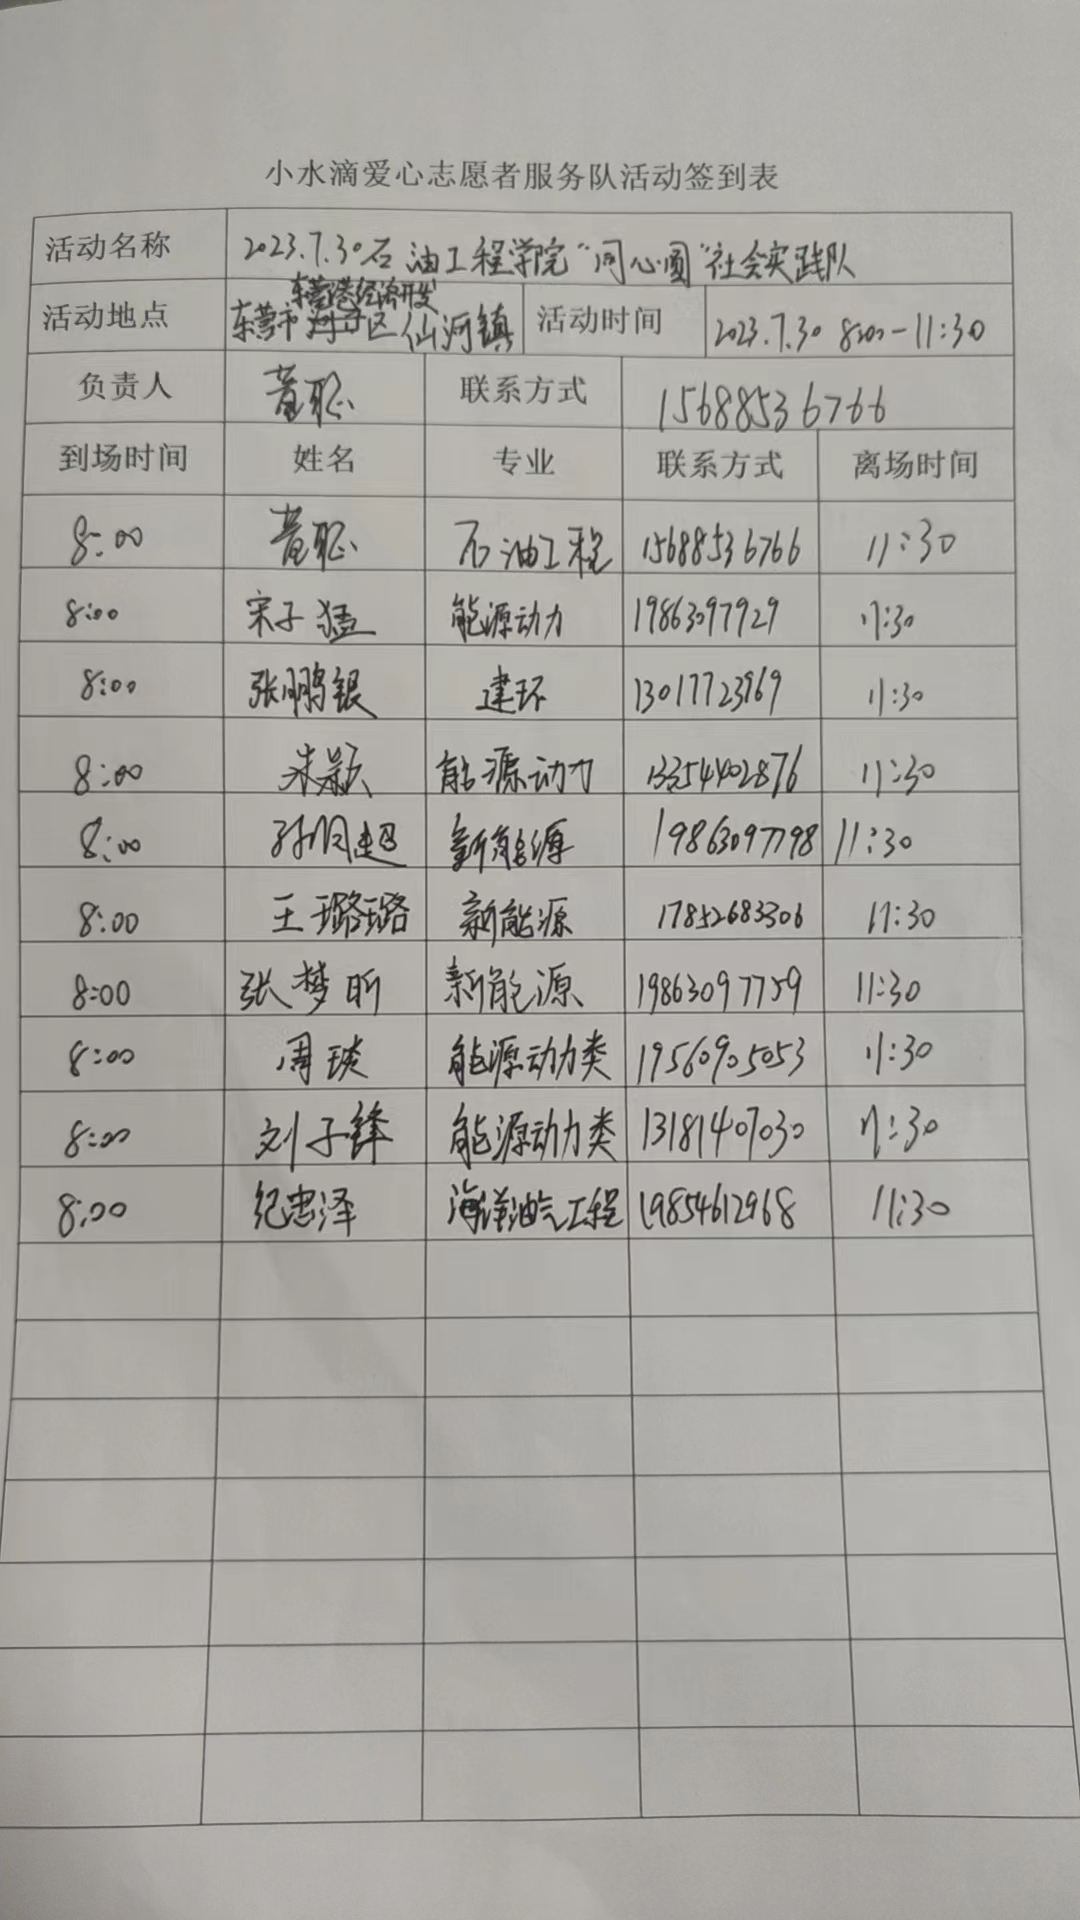 小水滴爱心志愿者服务队活动签到表
活动名称 2023.7.30石油工程学院“同心圆”社会实践队
东营港经济开发
活动地点 东营市 区仙河镇 活动时间 2023.7.30 8:00-11:30
负责人 黄聪 联系方式 15688536766
到场时间 姓名 专业 联系方式 离场时间
8:00 黄聪 石油工程 15688536766 11:30
8:00 宋子猛 能源动力 19863097929 11:30
8:00 张鹏银 建环 13017723969 11:30
8:00 朱颖 能源动力 13254402876 11:30
8:00 孙润超 新能源 19863097798 11:30
8:00 王璐璐 新能源 17852683306 11:30
8:00 张梦昕 新能源 19863097759 11:30
8:00 周琰 能源动力类 19560905053 11:30
8:00 刘子锋 能源动力类 13181407030 11:30
8:00 纪忠泽 海洋油气工程 19854612968 11:30